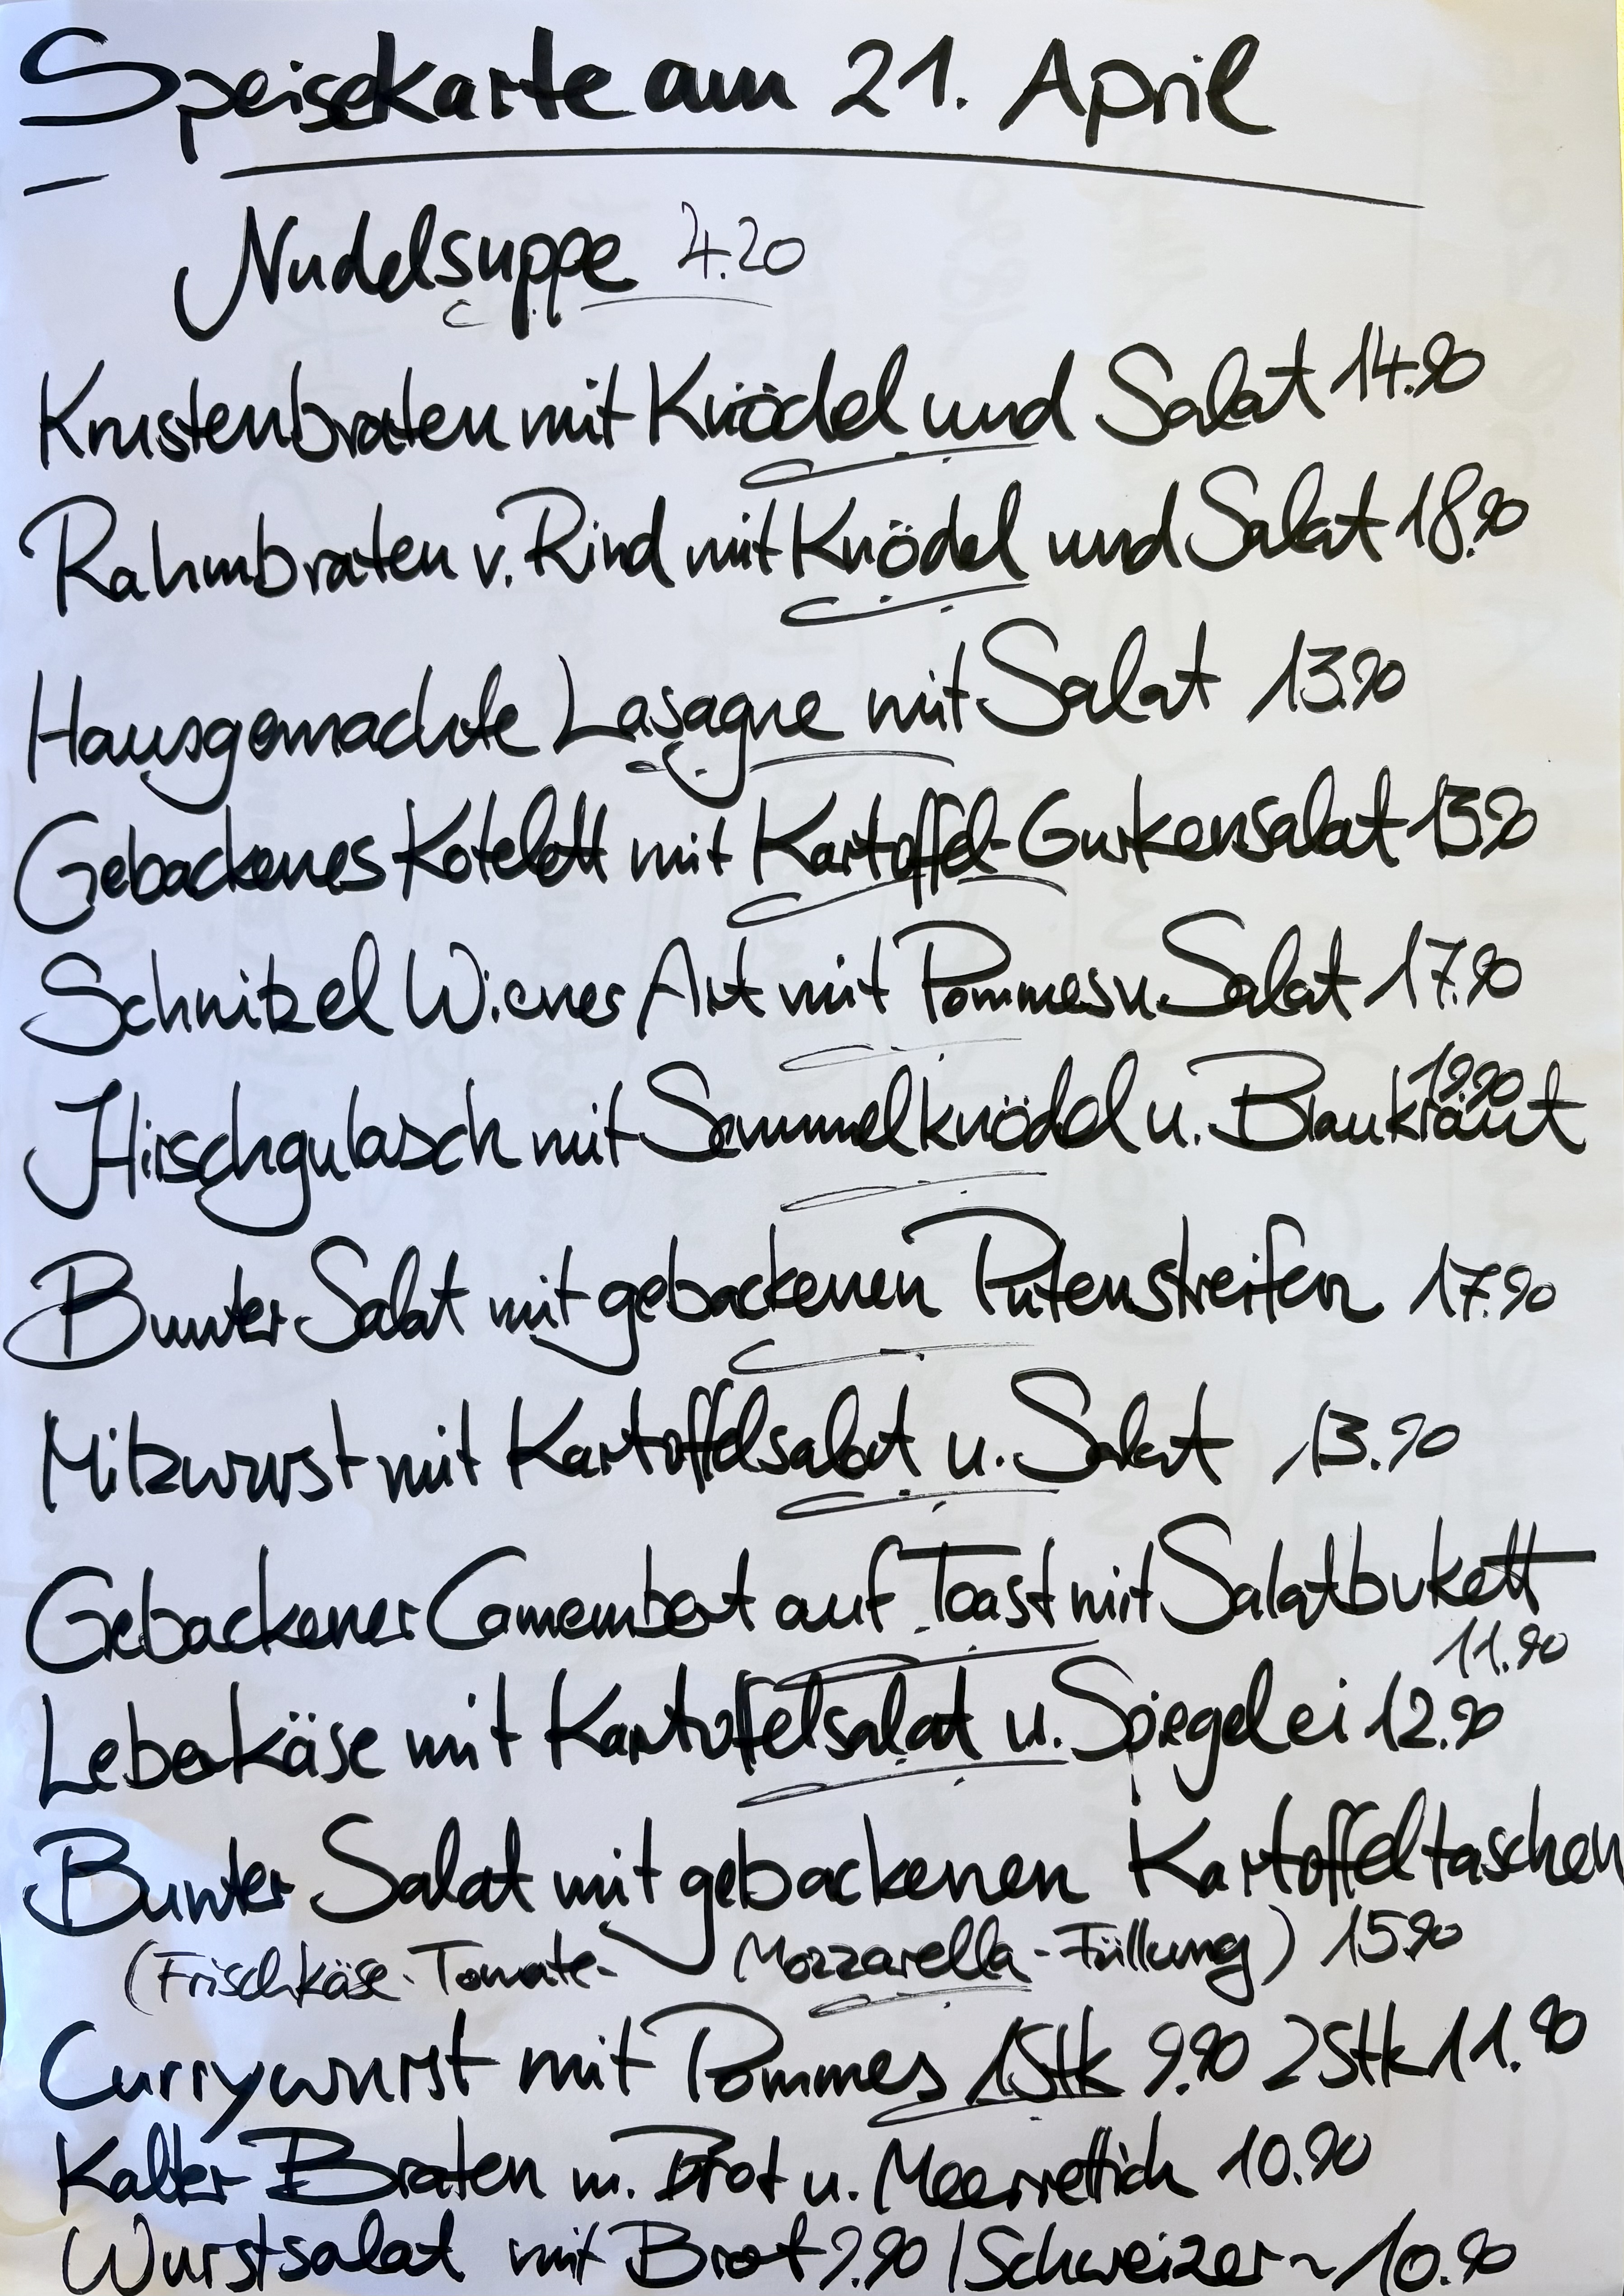 Speisekarte am 21. April
Nudelsuppe 4.20
Krustenbraten mit Knödel und Salat 14.90
Rahmbraten v. Rind mit Knödel und Salat 18.90
Hausgemachte Lasagne mit Salat 13.90
Gebackenes Kotelett mit Kartoffel-Gurkensalat 13.90
Schnitzel Wiener Art mit Pommes u. Salat 17.90
Hirschgulasch mit Semmelknödel u. Blaukraut 19.90
Bunter Salat mit gebackenen Putenstreifen 17.90
Milzwurst mit Kartoffelsalat u. Salat 13.90
Gebackener Camembert auf Toast mit Salatbukett
11.90
Leberkäse mit Kartoffelsalat u. Spiegelei 12.90
Bunter Salat mit gebackenen Kartoffeltaschen
(Frischkäse-Tomate-Mozzarella-Füllung) 15.90
Currywurst mit Pommes 1Stk 9.90 2Stk 11.90
Kalter Braten m. Brot u. Meerrettich 10.90
Wurstsalat mit Brot 9.90 / Schweizer ~ 10.90